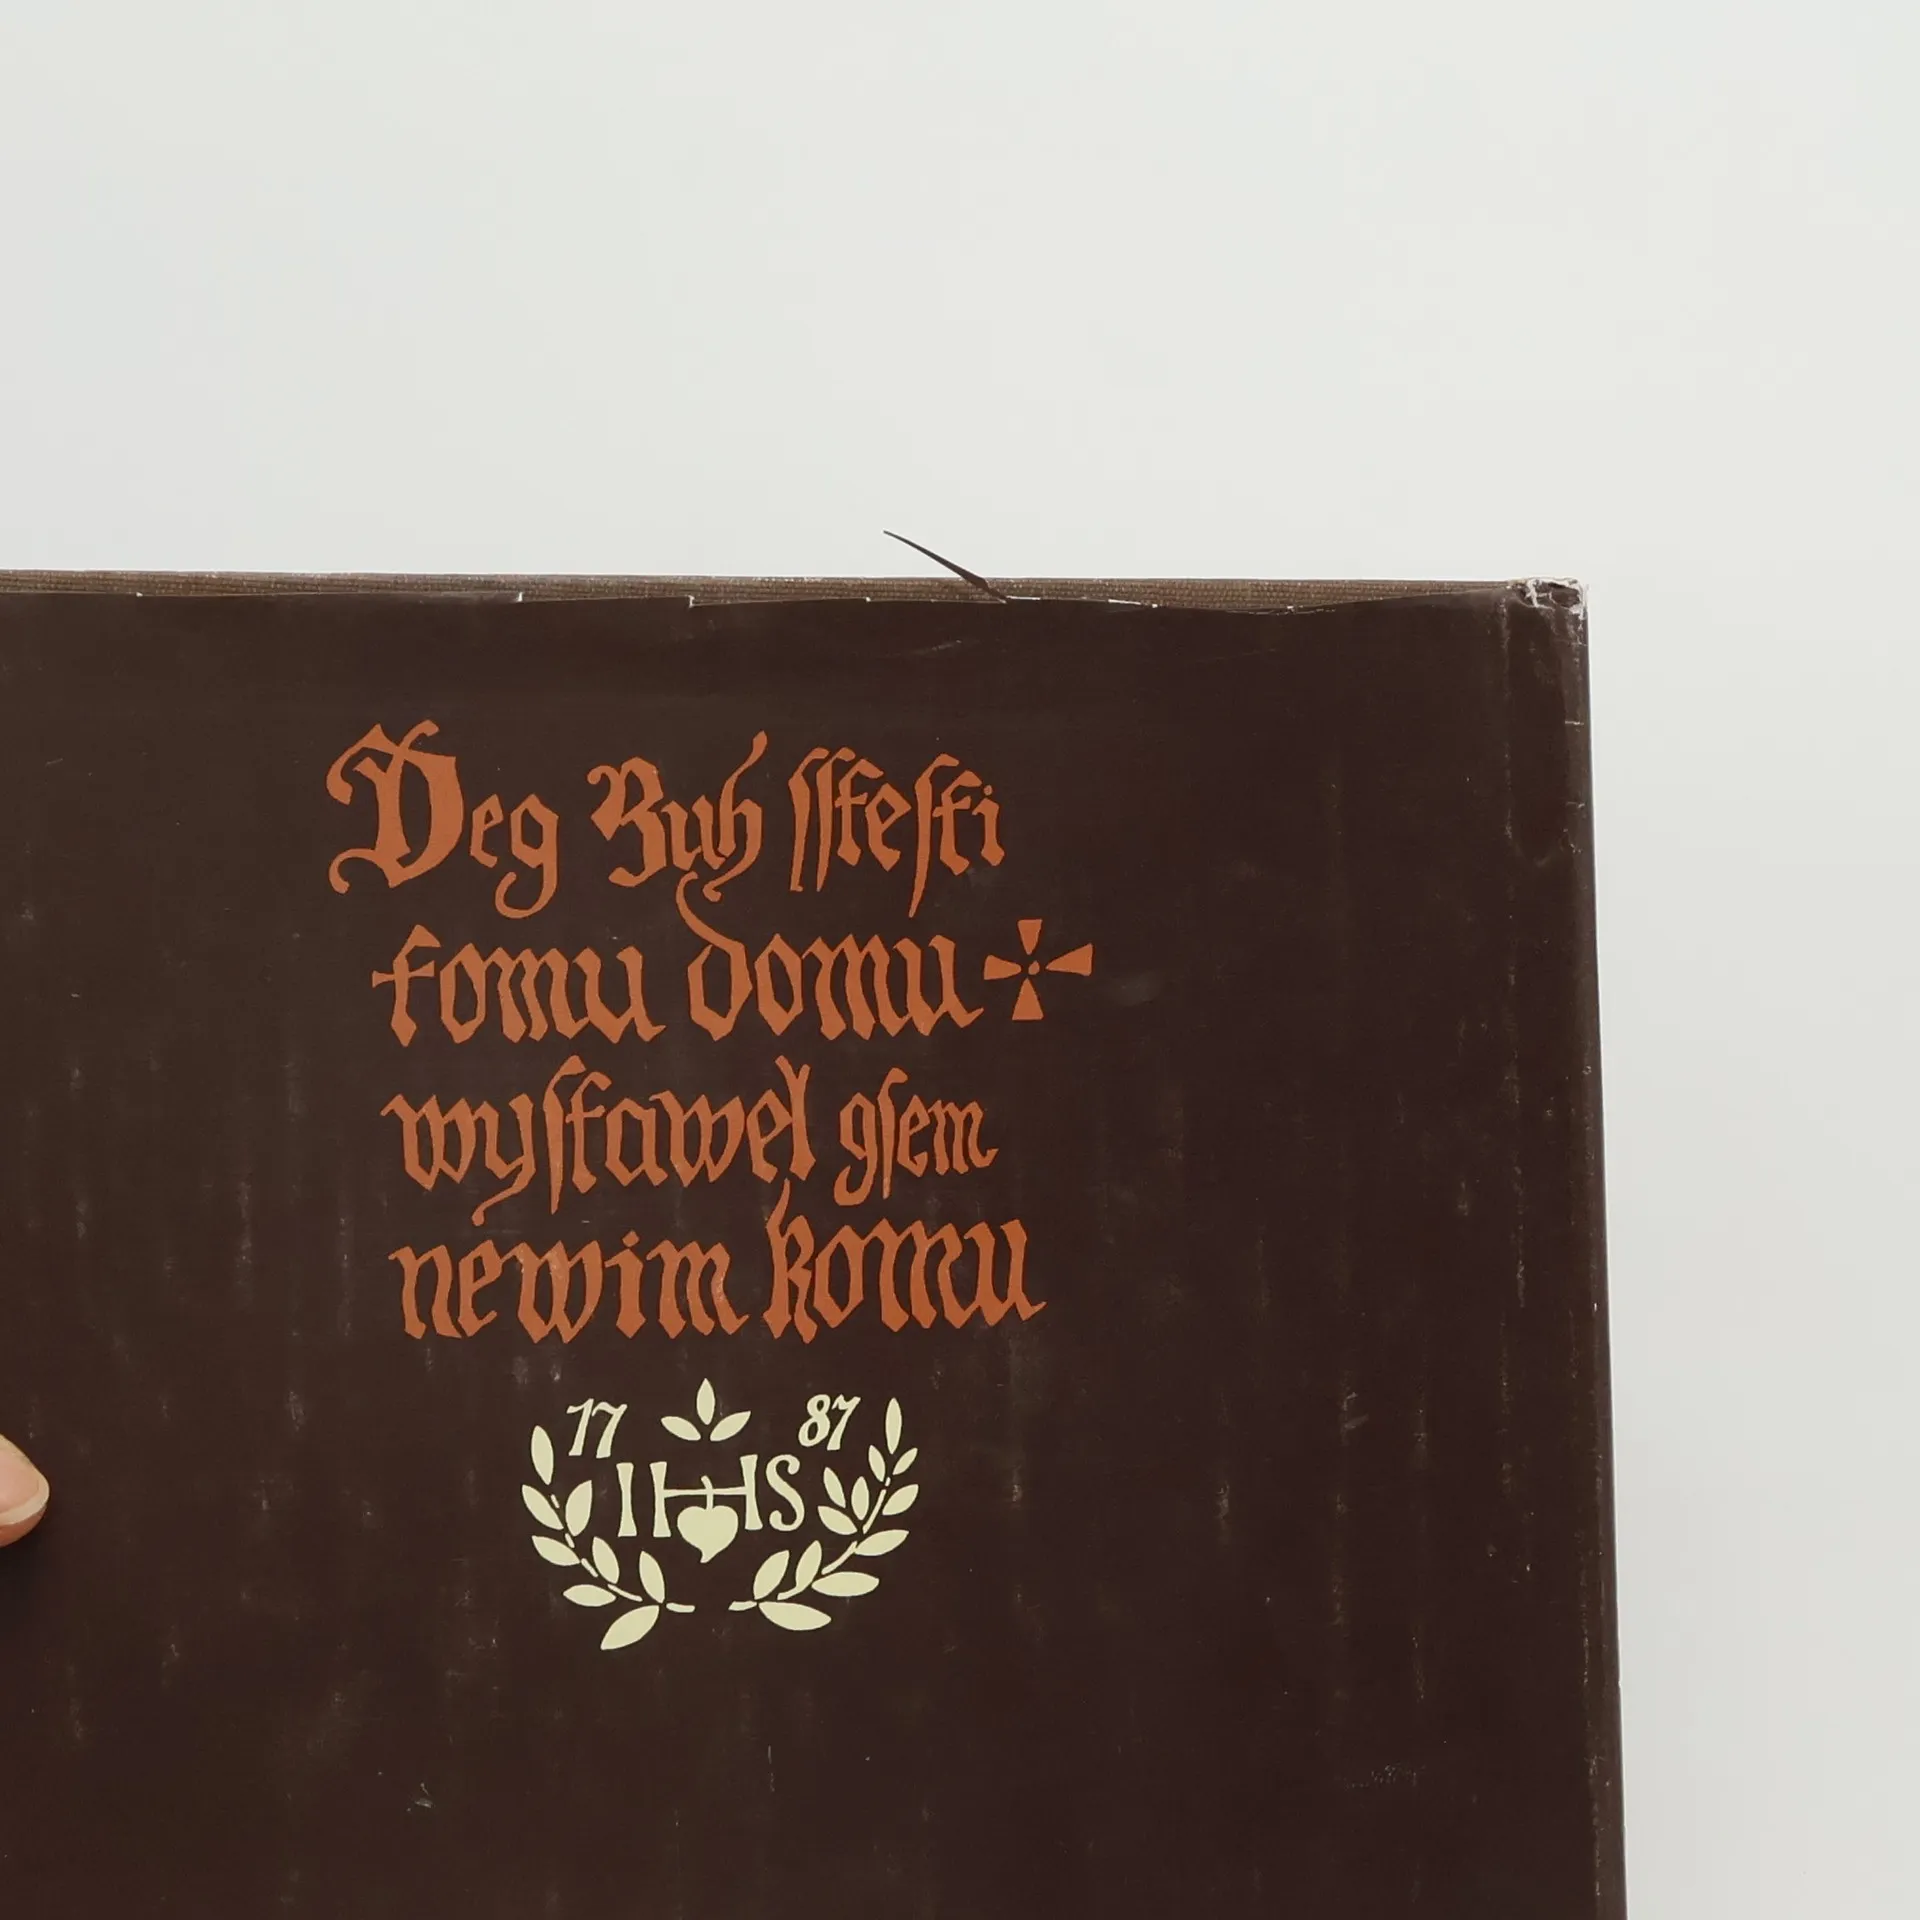 Deg Buh ſſteſti
tomu domu
wyſtawel gſem
newim komu
17 87
IHS